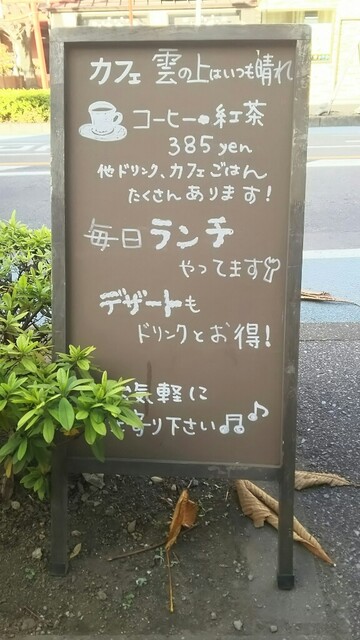 カフェ 雲の上はいつも晴れ
コーヒー・紅茶
385yen
他ドリンク、カフェごはん
たくさんあります!
毎日ランチ
やってます
デザートも
ドリンクとお得!
気軽に
寄り下さい♫♪